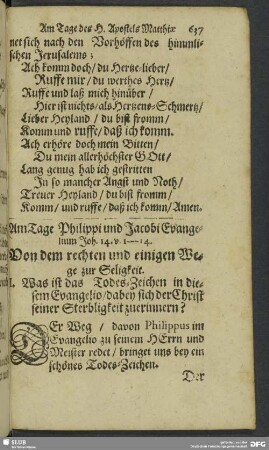 Am Tage des H. Apostels Matthiæ 637
net sich nach den Vorhöffen des himmli-
schen Jerusalems;
Ach komm doch/ du Hertze-lieber/
Ruffe mir/ du werthes Hertz/
Ruffe und laß mich hinüber/
Hier ist nichts/ als Hertzens-Schmertz/
Lieber Heyland/ du bist fromm/
Komm und ruffe/ daß ich komm.
Ach erhöre doch mein Bitten/
Du mein allerhöchster GOtt/
Lang genug hab ich gestritten
In so mancher Angst und Noth/
Treuer Heyland/ du bist fromm/
Komm/ und ruffe/ daß ich komm/ Amen.
Am Tage Philippi und Jacobi Evange-
lium Joh. 14. v. 1--14.
Von dem rechten und einigen We-
ge zur Seligkeit.
1. Was ist das Todes-Zeichen in die-
sem Evangelio/ dabey sich der Christ
seiner Sterbligkeit zu erinnern?
DEr Weg/ davon Philippus im
Evangelio zu seinem HErrn und
Meister redet/ bringet uns bey ein
schönes Todes-Zeichen.
Der
SLUB
DFG